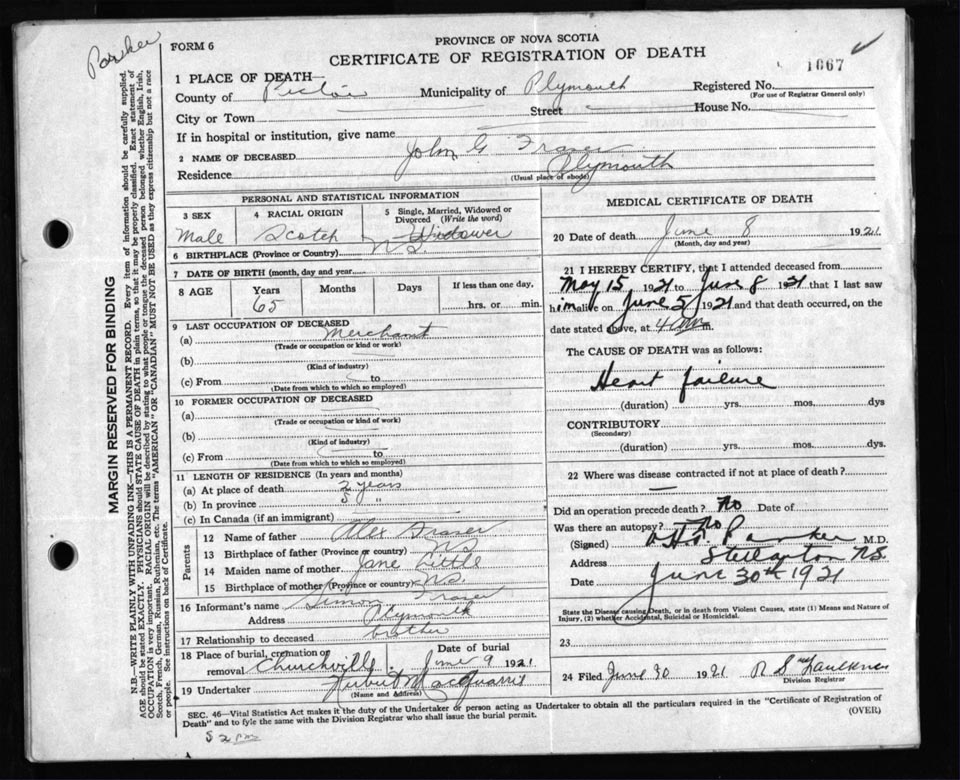 Parker
FORM 6
PROVINCE OF NOVA SCOTIA
CERTIFICATE OF REGISTRATION OF DEATH
1667
1 PLACE OF DEATH—
County of Pictou Municipality of Plymouth Registered No.
(For use of Registrar General only)
City or Town Street House No.
If in hospital or institution, give name
2 NAME OF DECEASED John G Fraser
Residence Plymouth
(Usual place of abode)
PERSONAL AND STATISTICAL INFORMATION
3 SEX Male
4 RACIAL ORIGIN Scotch
5 Single, Married, Widowed or Divorced (Write the word) Widower
6 BIRTHPLACE (Province or Country) N S.
7 DATE OF BIRTH (month, day and year)
8 AGE Years 65 Months Days If less than one day. hrs. or min.
9 LAST OCCUPATION OF DECEASED
(a) Merchant
(Trade or occupation or kind of work)
(b)
(Kind of industry)
(c) From to
(Date from which to which so employed)
10 FORMER OCCUPATION OF DECEASED
(a)
(Trade or occupation or kind of work)
(b)
(Kind of industry)
(c) From to
(Date from which to which so employed)
11 LENGTH OF RESIDENCE (In years and months)
(a) At place of death 2 years
(b) In province "
(c) In Canada (if an immigrant)
Parents
12 Name of father Alex Fraser
13 Birthplace of father (Province or country) N S
14 Maiden name of mother Jane Little
15 Birthplace of mother (Province or country) N S.
16 Informant's name Simon Fraser
Address Plymouth
17 Relationship to deceased brother
18 Place of burial, cremation of removal Churchville. Date of burial June 9 1921
19 Undertaker MacQuarrie
(Name and Address)
MEDICAL CERTIFICATE OF DEATH
20 Date of death June 8 1921
(Month, day and year)
21 I HEREBY CERTIFY, that I attended deceased from
May 15 1921 to June 8 1921 that I last saw
him alive on June 5 1921 and that death occurred, on the
date stated above, at 4 am m.
The CAUSE OF DEATH was as follows:
Heart failure
(duration) yrs. mos. dys
CONTRIBUTORY
(Secondary)
(duration) yrs. mos. dys.
22 Where was disease contracted if not at place of death?
Did an operation precede death? No Date of
Was there an autopsy? No
(Signed) Parker M.D.
Address Stellarton N.S.
Date June 30th 1921
State the Disease causing Death, or in death from Violent Causes, state (1) Means and Nature of
Injury, (2) whether Accidental, Suicidal or Homicidal.
23
24 Filed June 30 1921 R S Faulkner
Division Registrar
SEC. 46—Vital Statistics Act makes it the duty of the Undertaker or person acting as Undertaker to obtain all the particulars required in the "Certificate of Registration of
Death" and to fyle the same with the Division Registrar who shall issue the burial permit.
(OVER)
MARGIN RESERVED FOR BINDING
N.B.—WRITE PLAINLY WITH UNFADING INK—THIS IS A PERMANENT RECORD. Every item of information should be carefully supplied.
AGE should be stated EXACTLY. PHYSICIANS should STATE CAUSE OF DEATH in plain terms, so that it may be properly classified. Exact statement of
OCCUPATION is very important. RACIAL ORIGIN will be described by stating to what people or tongue the deceased person belonged whether English, Irish,
Scotch, French, German, Russian, Ruthenian, etc. The terms "AMERICAN" OR "CANADIAN" MUST NOT BE USED as they express citizenship but not a race
or people. See instructions on back of Certificate.